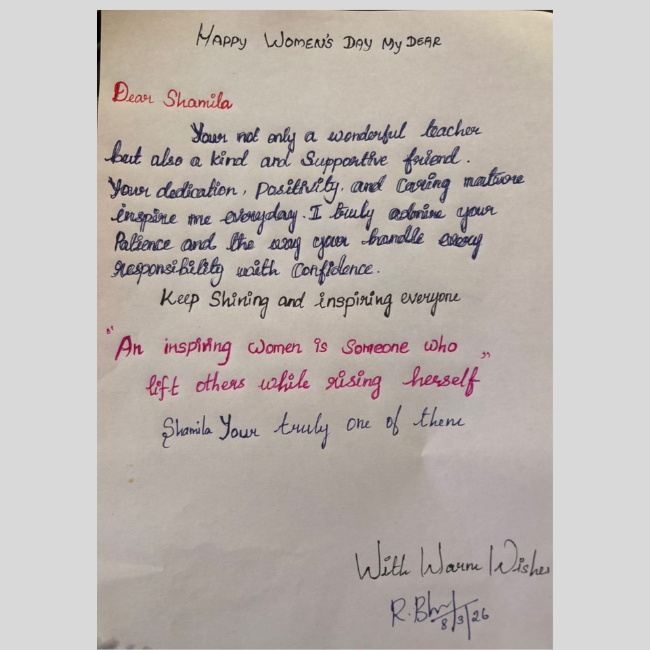 HAPPY WOMEN'S DAY MY DEAR
Dear Shamila
Your not only a wonderful teacher
but also a kind and Supportive friend.
Your dedication, Positivity, and Caring mature
inspire me everyday. I truly admire your
Patience and the way your handle every
responsibility with Confidence.
Keep Shining and inspiring everyone
"An inspiring women is Someone who"
lift others while rising herself
Shamila Your truly one of them
With Warm Wishes
R.
8/3/26